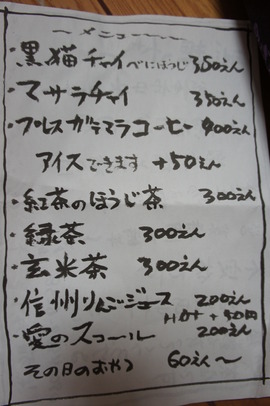 ～メニュー～～～
・黒猫チャイ べにほうじ 350えん
・マサラチャイ 350えん
・プレスガテマラコーヒー 400えん
アイスできます +50えん
・紅茶のほうじ茶 300えん
・緑茶 300えん
・玄米茶 300えん
・信州りんごジュース 200えん
Hot + 50円
・愛のスコール 200えん
その日のおやつ 60えん～